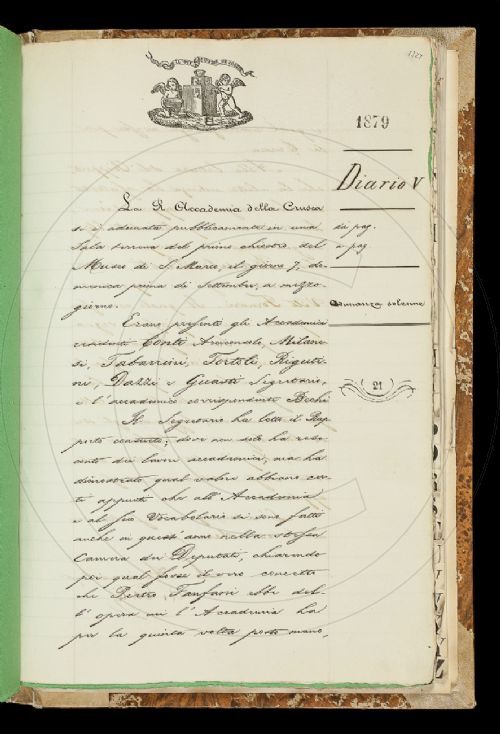 1879
Diario V
da pag.
a pag.
Adunanza solenne
21
La R. Accademia della Crusca
si è adunata pubblicamente in una
Sala terrena del primo chiostro del
Museo di S. Marco, il giorno 7, do-
menica prima di Settembre, a mezzo-
giorno.
Erano presenti gli Accademici
residenti Conti Arciconsolo, Milane-
si, Tabarrini, Tortoli, Riguti-
ni, Dazzi e Guasti Segretario,
e l'accademico corrispondente Bechi.
Il Segretario ha letto il Rap-
porto consueto; dove non solo ha reso
conto dei lavori accademici, ma ha
dimostrato qual valore abbiano cer-
te appunti che all'Accademia
e al suo Vocabolario si sono fatti
anche in quest'anno nella stessa
Camera dei Deputati, chiarendo
poi qual fosse il vero concetto
che Pietro Fanfani ebbe del-
l'opera cui l'Accademia ha
per la quinta volta posto mano,